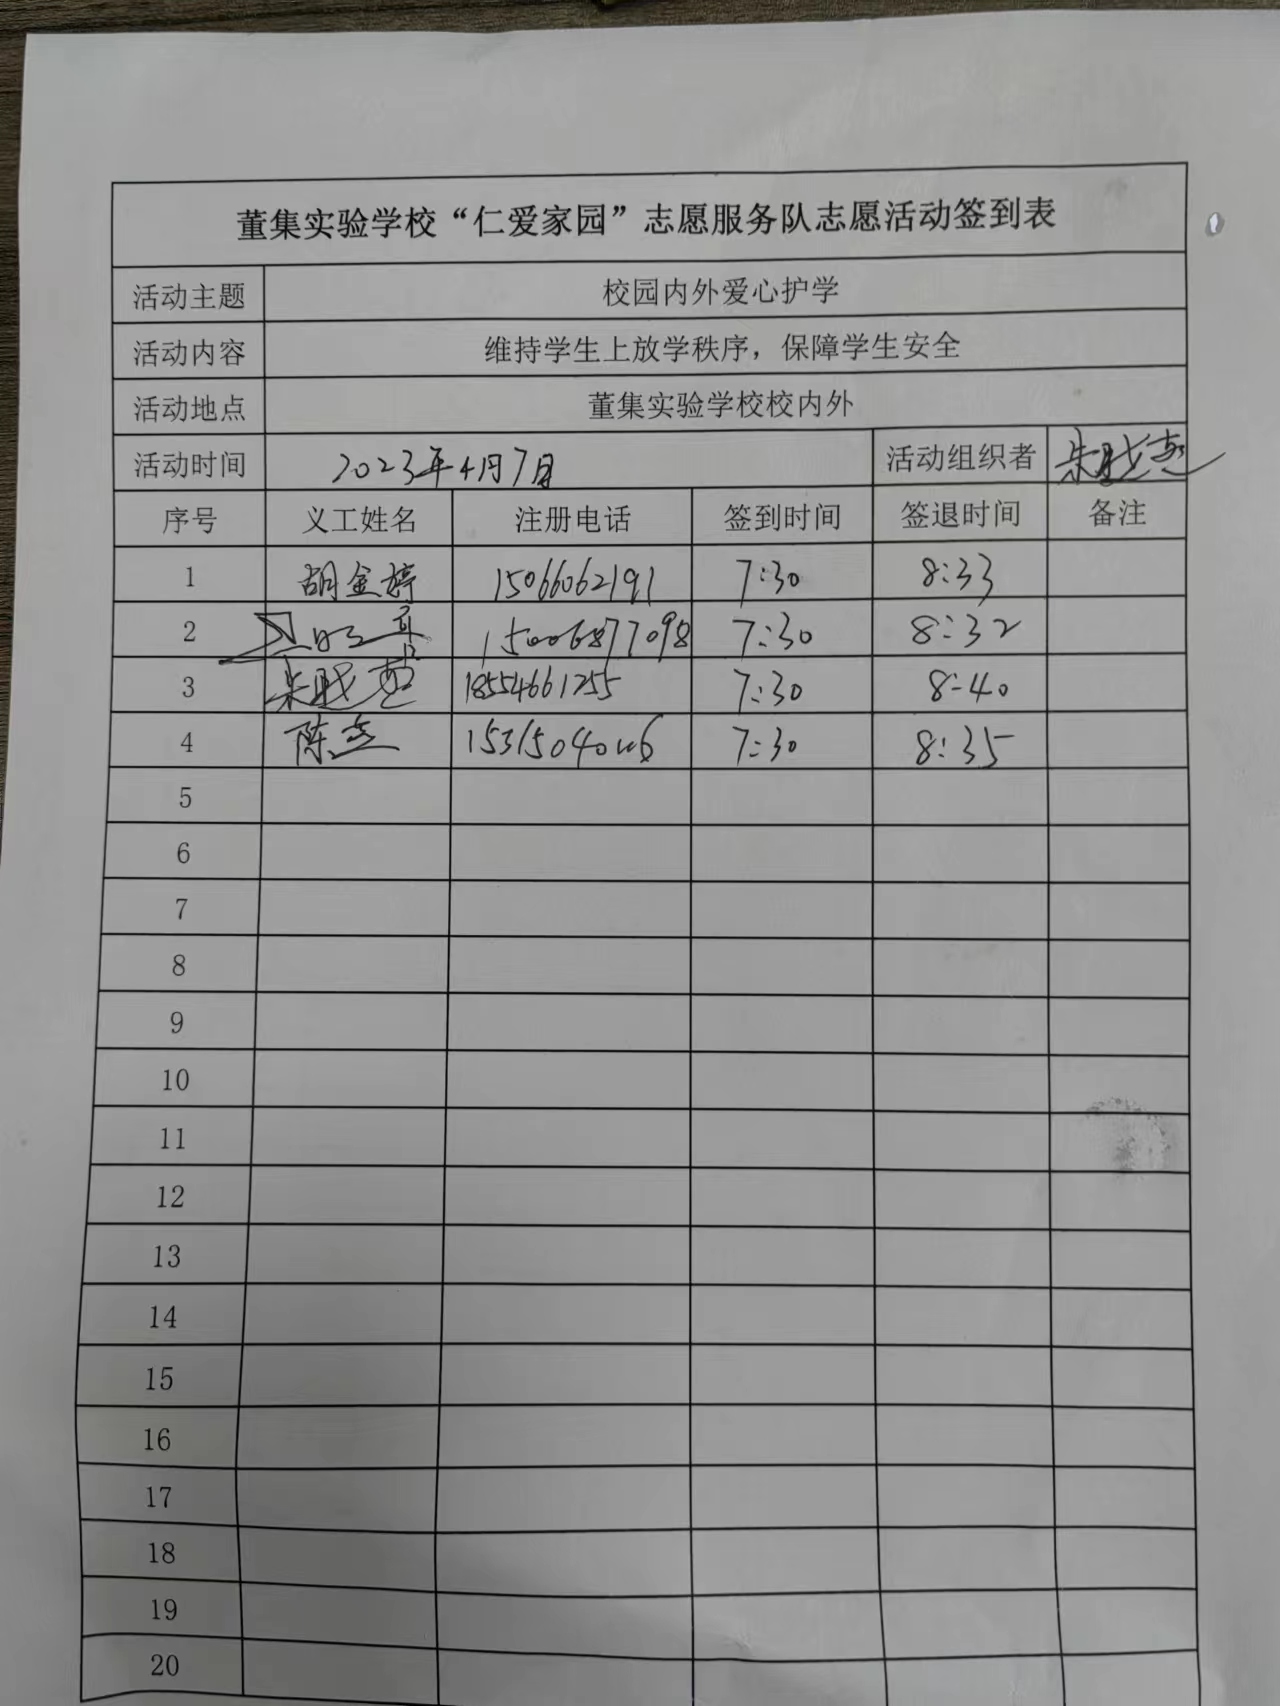 董集实验学校“仁爱家园”志愿服务队志愿活动签到表
活动主题 校园内外爱心护学
活动内容 维持学生上放学秩序，保障学生安全
活动地点 董集实验学校校内外
活动时间 2023年4月7日 活动组织者
序号 义工姓名 注册电话 签到时间 签退时间 备注
1 胡金婷 15066062191 7:30 8:33
2 15006877098 7:30 8:32
3 18554661255 7:30 8:40
4 陈 7:30 8:35
5
6
7
8
9
10
11
12
13
14
15
16
17
18
19
20